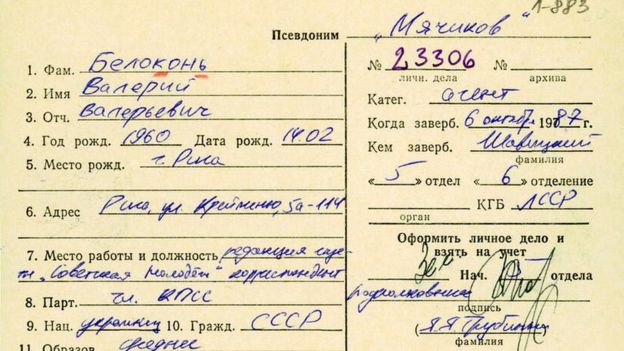 1-883
Псевдоним „Мячиков"
1. Фам. Белоконь
2. Имя Валерий
3. Отч. Валерьевич
4. Год рожд. 1960 Дата рожд. 14.02
5. Место рожд. г. Рига
6. Адрес Рига, ул. 5а-114
7. Место работы и должность редакция
„Советская молодёжь" корреспондент
8. Парт. чл. КПСС
9. Нац. украинец 10. Гражд. СССР
11. Образов. среднее
№ 23306
личн. дела архива
Катег. агент
Когда заверб. 6 октября 1987 г.
Кем заверб. Шавицкий
фамилия
«5» отдел «6» отделение
КГБ ЛССР
орган
Оформить личное дело и
взять на учет
Нач. отдела
подполковник
подпись
(Я.Я.)
фамилия